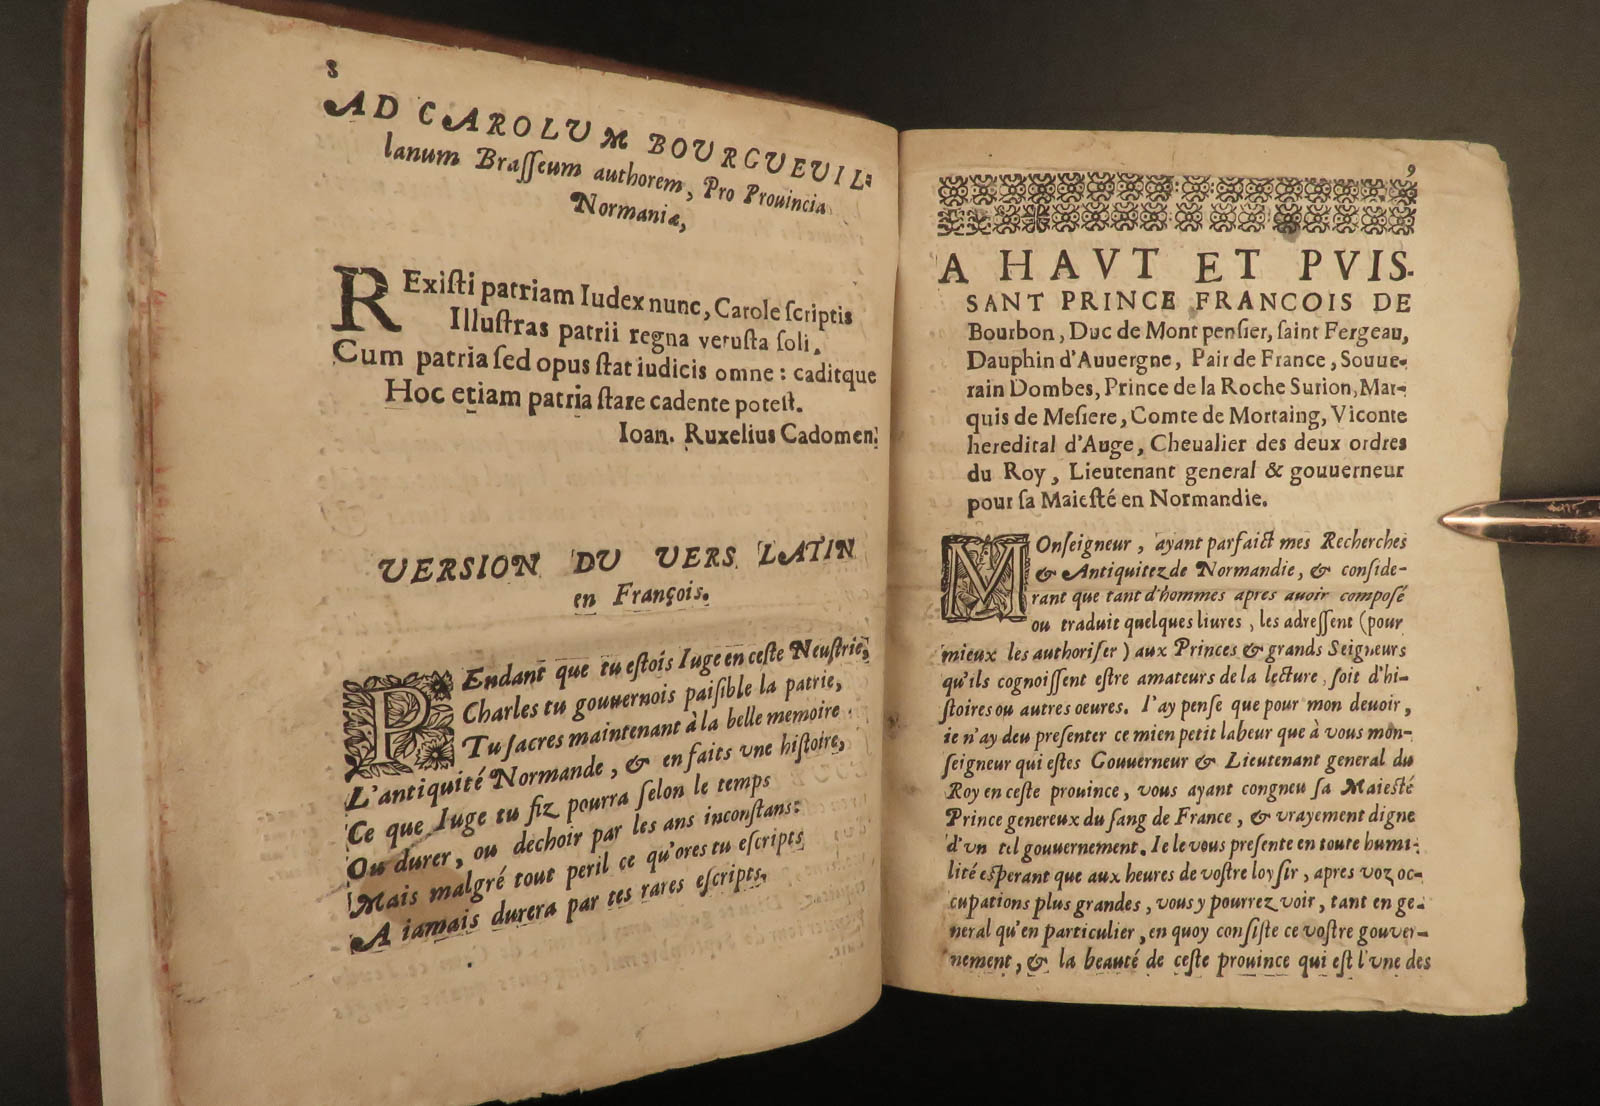 8
AD CAROLUM BOURGUEVIL-
lanum Braſſeum authorem, Pro Prouincia
Normaniæ,
RExiſti patriam Iudex nunc, Carole ſcriptis
Illuſtras patrii regna vetuſta ſoli.
Cum patria ſed opus ſtat iudicis omne: caditque
Hoc etiam patria ſtare cadente poteſt.
Ioan. Ruxelius Cadomen.
VERSION DU VERS LATIN
en François.
PEndant que tu eſtois Iuge en ceſte Neuſtrie,
Charles tu gouuernois paiſible la patrie,
Tu ſacres maintenant à la belle memoire
L'antiquité Normande, & en faits vne hiſtoire,
Ce que Iuge tu fiz pourra ſelon le temps
Ou durer, ou dechoir par les ans inconſtans:
Mais malgré tout peril ce qu'ores tu eſcripts
A iamais durera par tes rares eſcripts,
9
A HAVT ET PVIS-
SANT PRINCE FRANCOIS DE
Bourbon, Duc de Montpenſier, ſaint Fergeau,
Dauphin d'Auuergne, Pair de France, Souue-
rain Dombes, Prince de la Roche Surion, Mar-
quis de Meſiere, Comte de Mortaing, Viconte
heredital d'Auge, Cheualier des deux ordres
du Roy, Lieutenant general & gouuerneur
pour ſa Maieſté en Normandie.
MOnſeigneur, ayant parfaict mes Recherches
& Antiquitez de Normandie, & conſide-
rant que tant d'hommes apres auoir compoſé
ou traduit quelques liures, les adreſſent (pour
mieux les authoriſer) aux Princes & grands Seigneurs
qu'ils cognoiſſent eſtre amateurs de la lecture, ſoit d'hi-
ſtoires ou autres oeures. I'ay penſe que pour mon deuoir,
ie n'ay deu preſenter ce mien petit labeur que à vous mon-
ſeigneur qui eſtes Gouuerneur & Lieutenant general du
Roy en ceſte prouince, vous ayant congneu ſa Maieſté
Prince genereux du ſang de France, & vrayement digne
d'vn tel gouuernement. Ie le vous preſente en toute humi-
lité eſperant que aux heures de voſtre loyſir, apres voz oc-
cupations plus grandes, vous y pourrez voir, tant en ge-
neral qu'en particulier, en quoy conſiſte ce voſtre gouuer-
nement, & la beauté de ceſte prouince qui eſt l'vne des